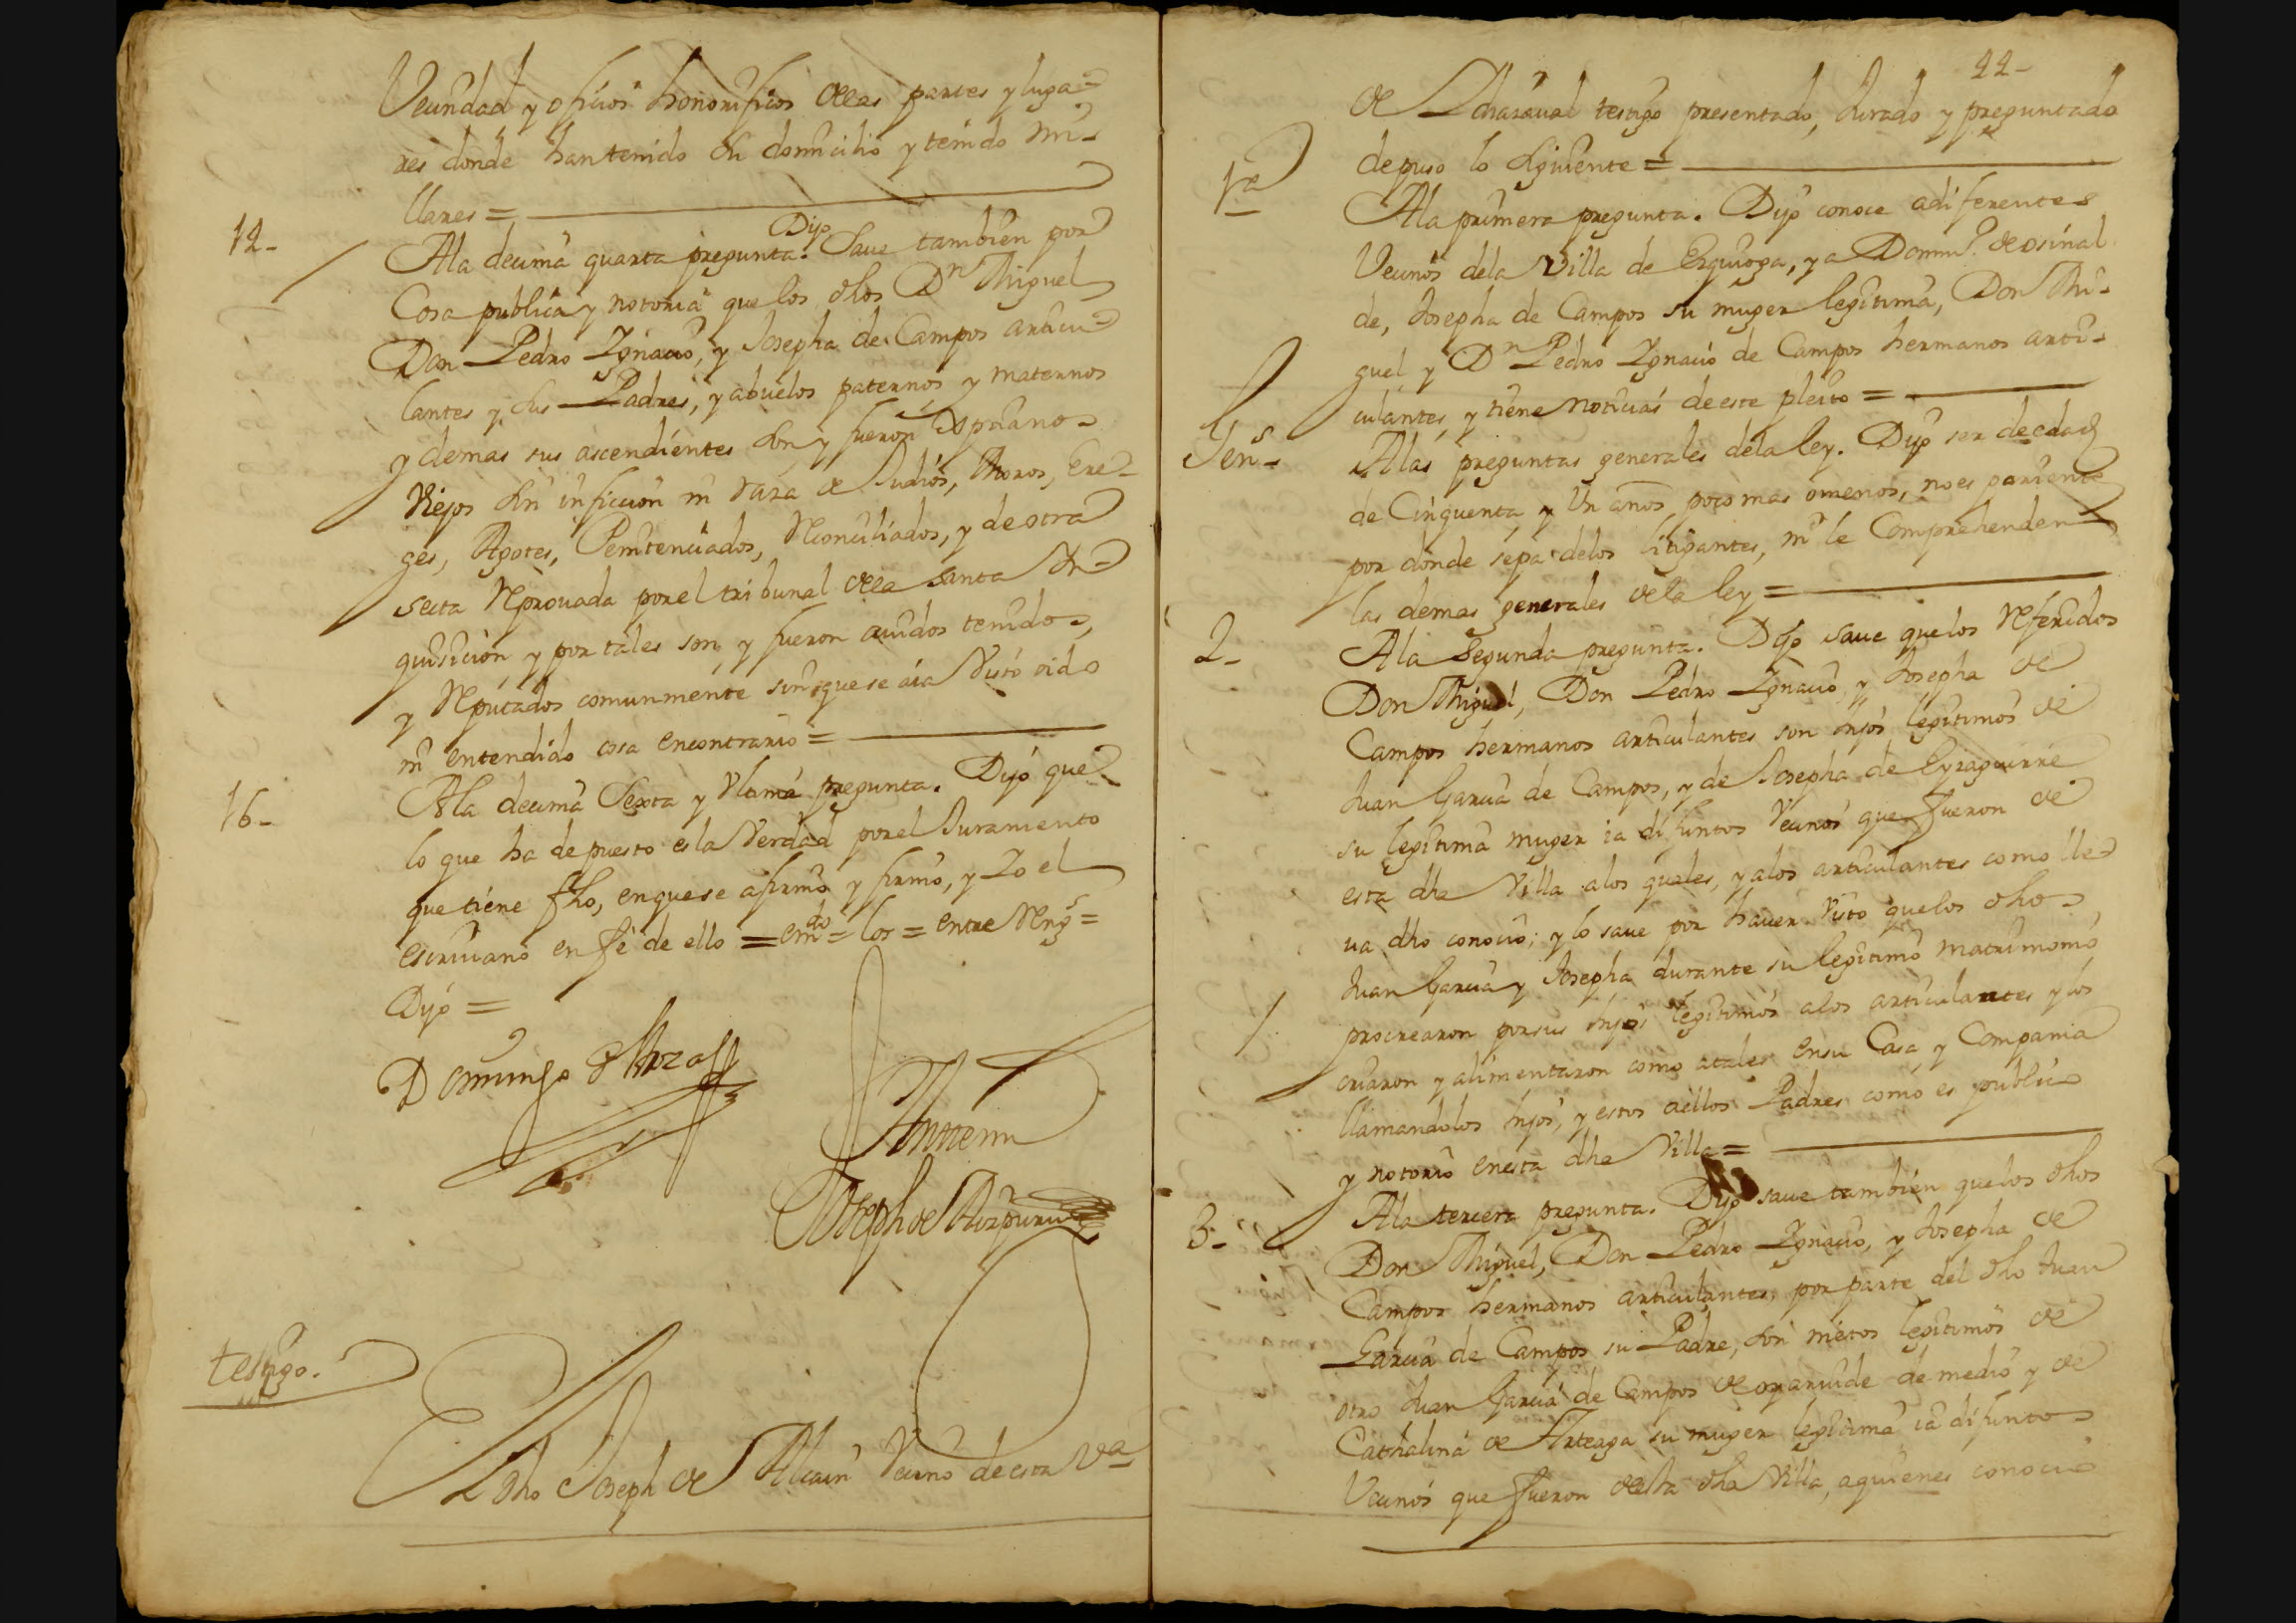 Vecindad y oficios honorificos dela's partes y luga=
res donde han tenido su domicilio y tenido mi-
llares =
14- Ala decima quarta pregunta. Dijo Save tambien por
Cosa publica y notoria que los dhos Dn Miguel
Don Pedro Ygnacio, y Josepha de Campos articu=
lantes y sus Padres, y abuelos paternos y maternos
y demas sus ascendientes son y fueron Xpianos
Viejos sin inficcion ni raza de Judios, Moros, Ere-
ges, Agotes, Penitenciados, Reconciliados, y de otra
secta Reprovada por el tribunal dela santa In=
quisicion, y por tales son, y fueron avidos tenidos,
y Reputados comunmente sin que se aia visto oido
ni entendido cosa encontrario =
16- Ala decima Sexta y Ultima pregunta. Dijo que
lo que ha depuesto es la Verdad por el Juramento
que tiene fho, en que se afirmo y firmo, y Yo el
escrivano en fe de ello = emdo = los = entre Reng.s =
Dijo =
Domingo
Antemi
Joseph de Aizpuru
testigo.
El dho Joseph de Alcain Vecino de esta Va
44-
de testigo presentado, Jurado y preguntado
depuso lo siguiente =
1ra Ala primera pregunta. Dijo conoce a diferentes
Vecinos dela Villa de Ezquioga, y a Domin.o de Osinal
de, Josepha de Campos su muger legitima, Don Mi-
guel, y Dn Pedro Ygnacio de Campos hermanos arti-
culantes, y tiene noticias de este pleito =
Gen.s- Alas preguntas generales dela ley. Dijo ser de edad
de Cinquenta y Un anos poco mas omenos, no es pariente
por donde sepa delos litigantes, ni le Comprehenden
las demas generales dela ley =
2- Ala Segunda pregunta. Dijo save que los Referidos
Don Miguel, Don Pedro Ygnacio, y Josepha de
Campos hermanos articulantes son hijos legitimos de
Juan Garcia de Campos, y de Josepha de Eyzaguirre
su legitima muger ia difuntos Vecinos que fueron de
esta dha Villa alos quales, y alos articulantes como lle=
va dho conocio; y lo save por haver visto que los dhos
Juan Garcia y Josepha durante su legitimo matrimonio
procrearon por sus hijos legitimos alos articulantes y los
criaron y alimentaron como atales en su Casa y Compania
llamandolos hijos, y estos aellos Padres como es publico
y notorio en esta dha Villa =
3- Ala tercera pregunta. Dijo save tambien que los dhos
Don Miguel, Don Pedro Ygnacio, y Josepha de
Campos hermanos articulantes, por parte del dho Juan
Garcia de Campos su Padre, son nietos legitimos de
otro Juan Garcia de Campos de oyarvide de medio y de
Cathalina de Arteaga su muger legitima ia difuntos
Vecinos que fueron desta dha Villa, aquienes conocio